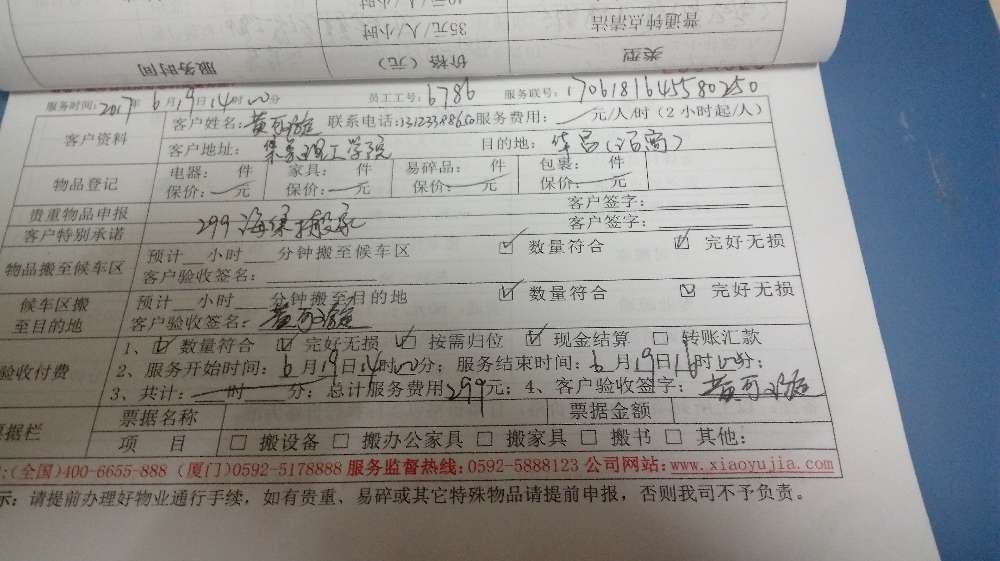 10元/人/小时
普通钟点清洁 35元/人/小时
类型 价格(元) 服务时间
服务时间:2017年6月19日14时00分 员工工号:6786 服务联号:1706181645580250
客户资料 客户姓名:黄 联系电话: 服务费用: 元/人/时(2小时起/人)
客户地址: 集美理工学院 目的地: 华昌(
物品登记 电器: 件 家具: 件 易碎品: 件 包裹: 件
保价: 元 保价: 元 保价: 元 保价: 元
贵重物品申报 客户签字:
客户特别承诺 299海绵搬家 客户签字:
物品搬至候车区 预计 小时 分钟搬至候车区 ☑ 数量符合 ☑ 完好无损
客户验收签名:
候车区搬至目的地 预计 小时 分钟搬至目的地 ☑ 数量符合 ☑ 完好无损
客户验收签名: 黄
验收付费 1、☑ 数量符合 ☑ 完好无损 ☑ 按需归位 ☑ 现金结算 □ 转账汇款
2、服务开始时间: 6月19日14时00分; 服务结束时间: 6月19日16时00分;
3、共计: 时 分; 总计服务费用299元; 4、客户验收签字: 黄
票据栏 票据名称 票据金额
项 目 □ 搬设备 □ 搬办公家具 □ 搬家具 □ 搬书 □ 其他:
:(全国)400-6655-888 (厦门)0592-5178888 服务监督热线:0592-5888123 公司网站:www.xiaoyujia.com
示: 请提前办理好物业通行手续,如有贵重、易碎或其它特殊物品请提前申报,否则我司不予负责。